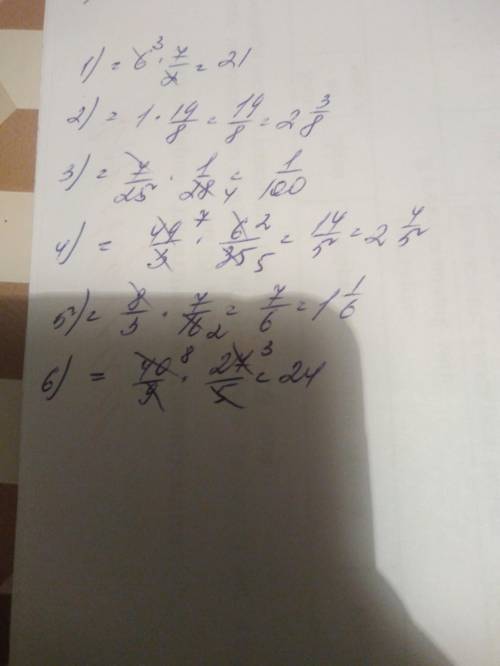 1) = 6³ · 7/2 = 21
2) = 1 · 19/8 = 19/8 = 2 3/8
3) = 7/25 · 1/28 4 = 1/100
4) = 49/3 7 · 6/35 2 5 = 14/5 = 2 4/5
5) = 8/3 · 7/16 2 = 7/6 = 1 1/6
6) = 40/9 8 · 27/5 3 = 24